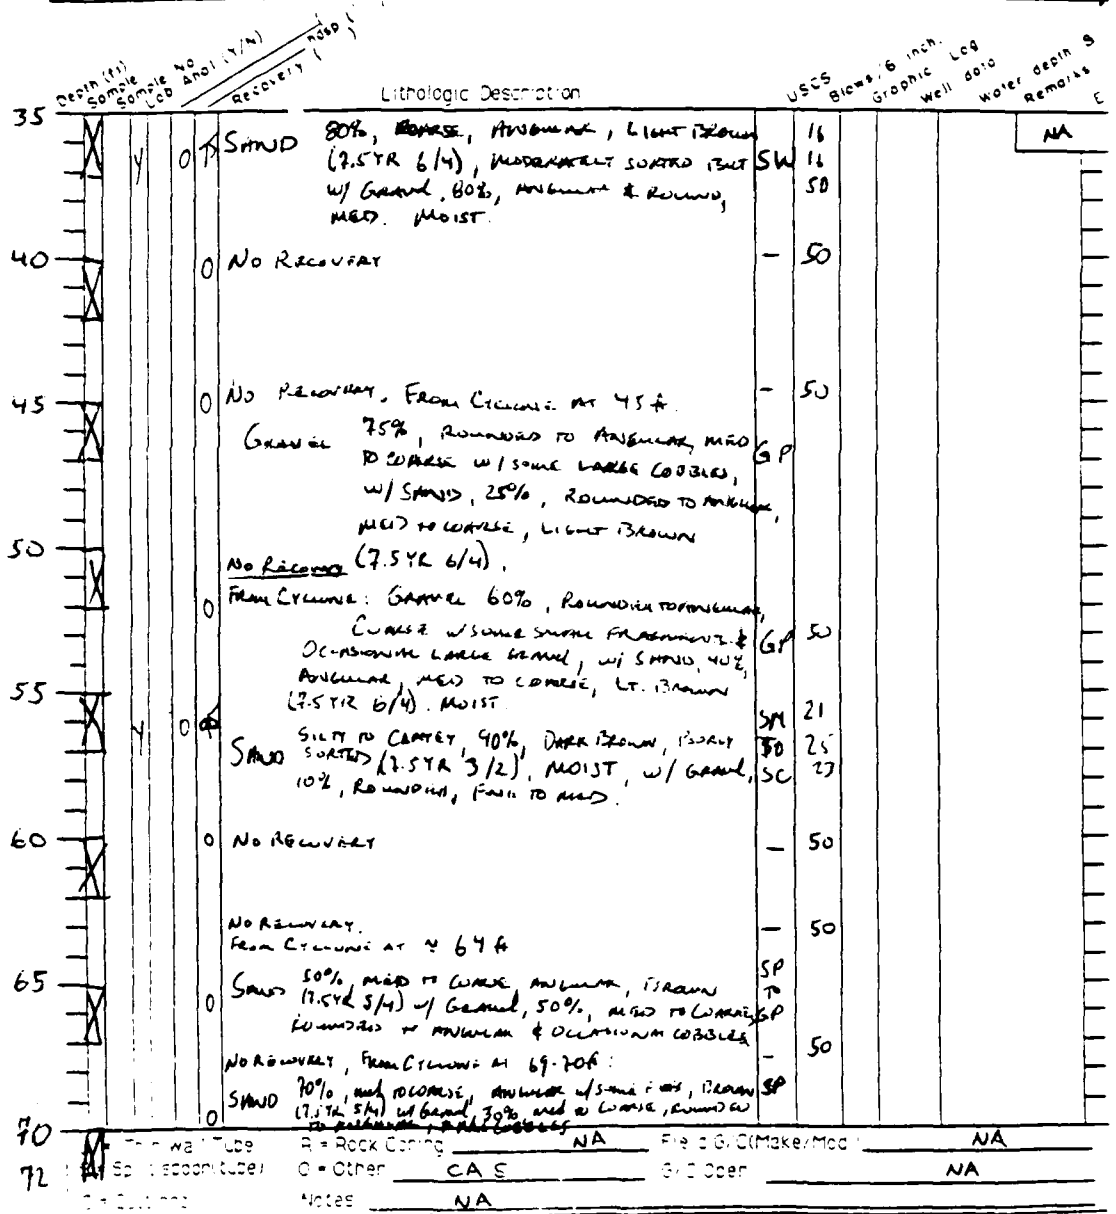 Depth (ft)
Sample
Sample No
Lab Anal (Y/N)
Recovery (
USCS
Blows/6 inch.
Graphic Log
Well data
Water depth &
Remarks
E
Lithologic Description
35
SAND 80%, COARSE, ANGULAR, LIGHT BROWN 16 NA
Y 0 (7.5YR 6/4), MODERATELY SORTED BUT SW 16
W/ GRAVEL, 80%, ANGULAR & ROUND, 50
MED. MOIST.
40 0 NO RECOVERY - 50
45 0 NO RECOVERY. FROM CYCLONE AT 45 ft - 50
GRAVEL 75%, ROUNDED TO ANGULAR, MED GP
TO COARSE W/ SOME LARGE COBBLES,
W/ SAND, 25%, ROUNDED TO ANGULAR,
MED TO COARSE, LIGHT BROWN
50 NO RECOVERY (7.5YR 6/4).
0 FROM CYCLONE: GRAVEL 60%, ROUNDED TO ANGULAR,
COARSE W/ SOME SMALL FRAGMENTS & GP 50
OCCASIONAL LARGE GRAVEL, W/ SAND, 40%,
ANGULAR, MED TO COARSE, LT. BROWN
55 (7.5YR 6/4). MOIST SM 21
Y 0 SAND SILTY TO CLAYEY, 90%, DARK BROWN, POORLY TO 25
SORTED (7.5YR 3/2), MOIST, W/ GRAVEL, SC 23
10%, ROUNDED, FINE TO MED.
60 0 NO RECOVERY - 50
NO RECOVERY. - 50
FROM CYCLONE AT ~ 64 ft
65 SAND 50%, MED TO COARSE, ANGULAR, BROWN SP
0 (7.5YR 5/4) W/ GRAVEL, 50%, MED TO COARSE, TO GP
ROUNDED TO ANGULAR & OCCASIONAL COBBLES
NO RECOVERY, FROM CYCLONE AT 69-70ft: - 50
SAND 70%, MED TO COARSE, ANGULAR W/ SOME, BROWN SP
0 (7.5YR 5/4) W/ GRAVEL, 30%, MED TO COARSE, ROUNDED
TO ANGULAR, COBBLES
70
72
Thin Wall Tube R = Rock Coring NA Field G/C(Make/Mod.) NA
Split spoon(tube) O = Other CAS G/C Oper NA
Notes NA